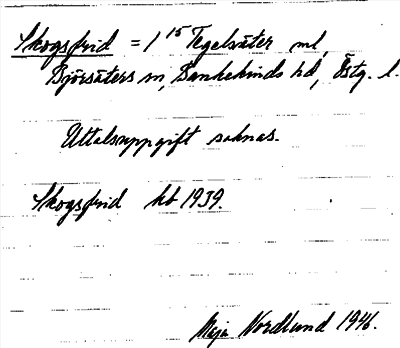 Skogsfrid = 1¹⁵ Tegelsäter ml,
Björsäters sn, Bankekinds hd, Östg. l.
Uttalsuppgift saknas.
Skogsfrid hb 1939.
Maja Nordlund 1946.